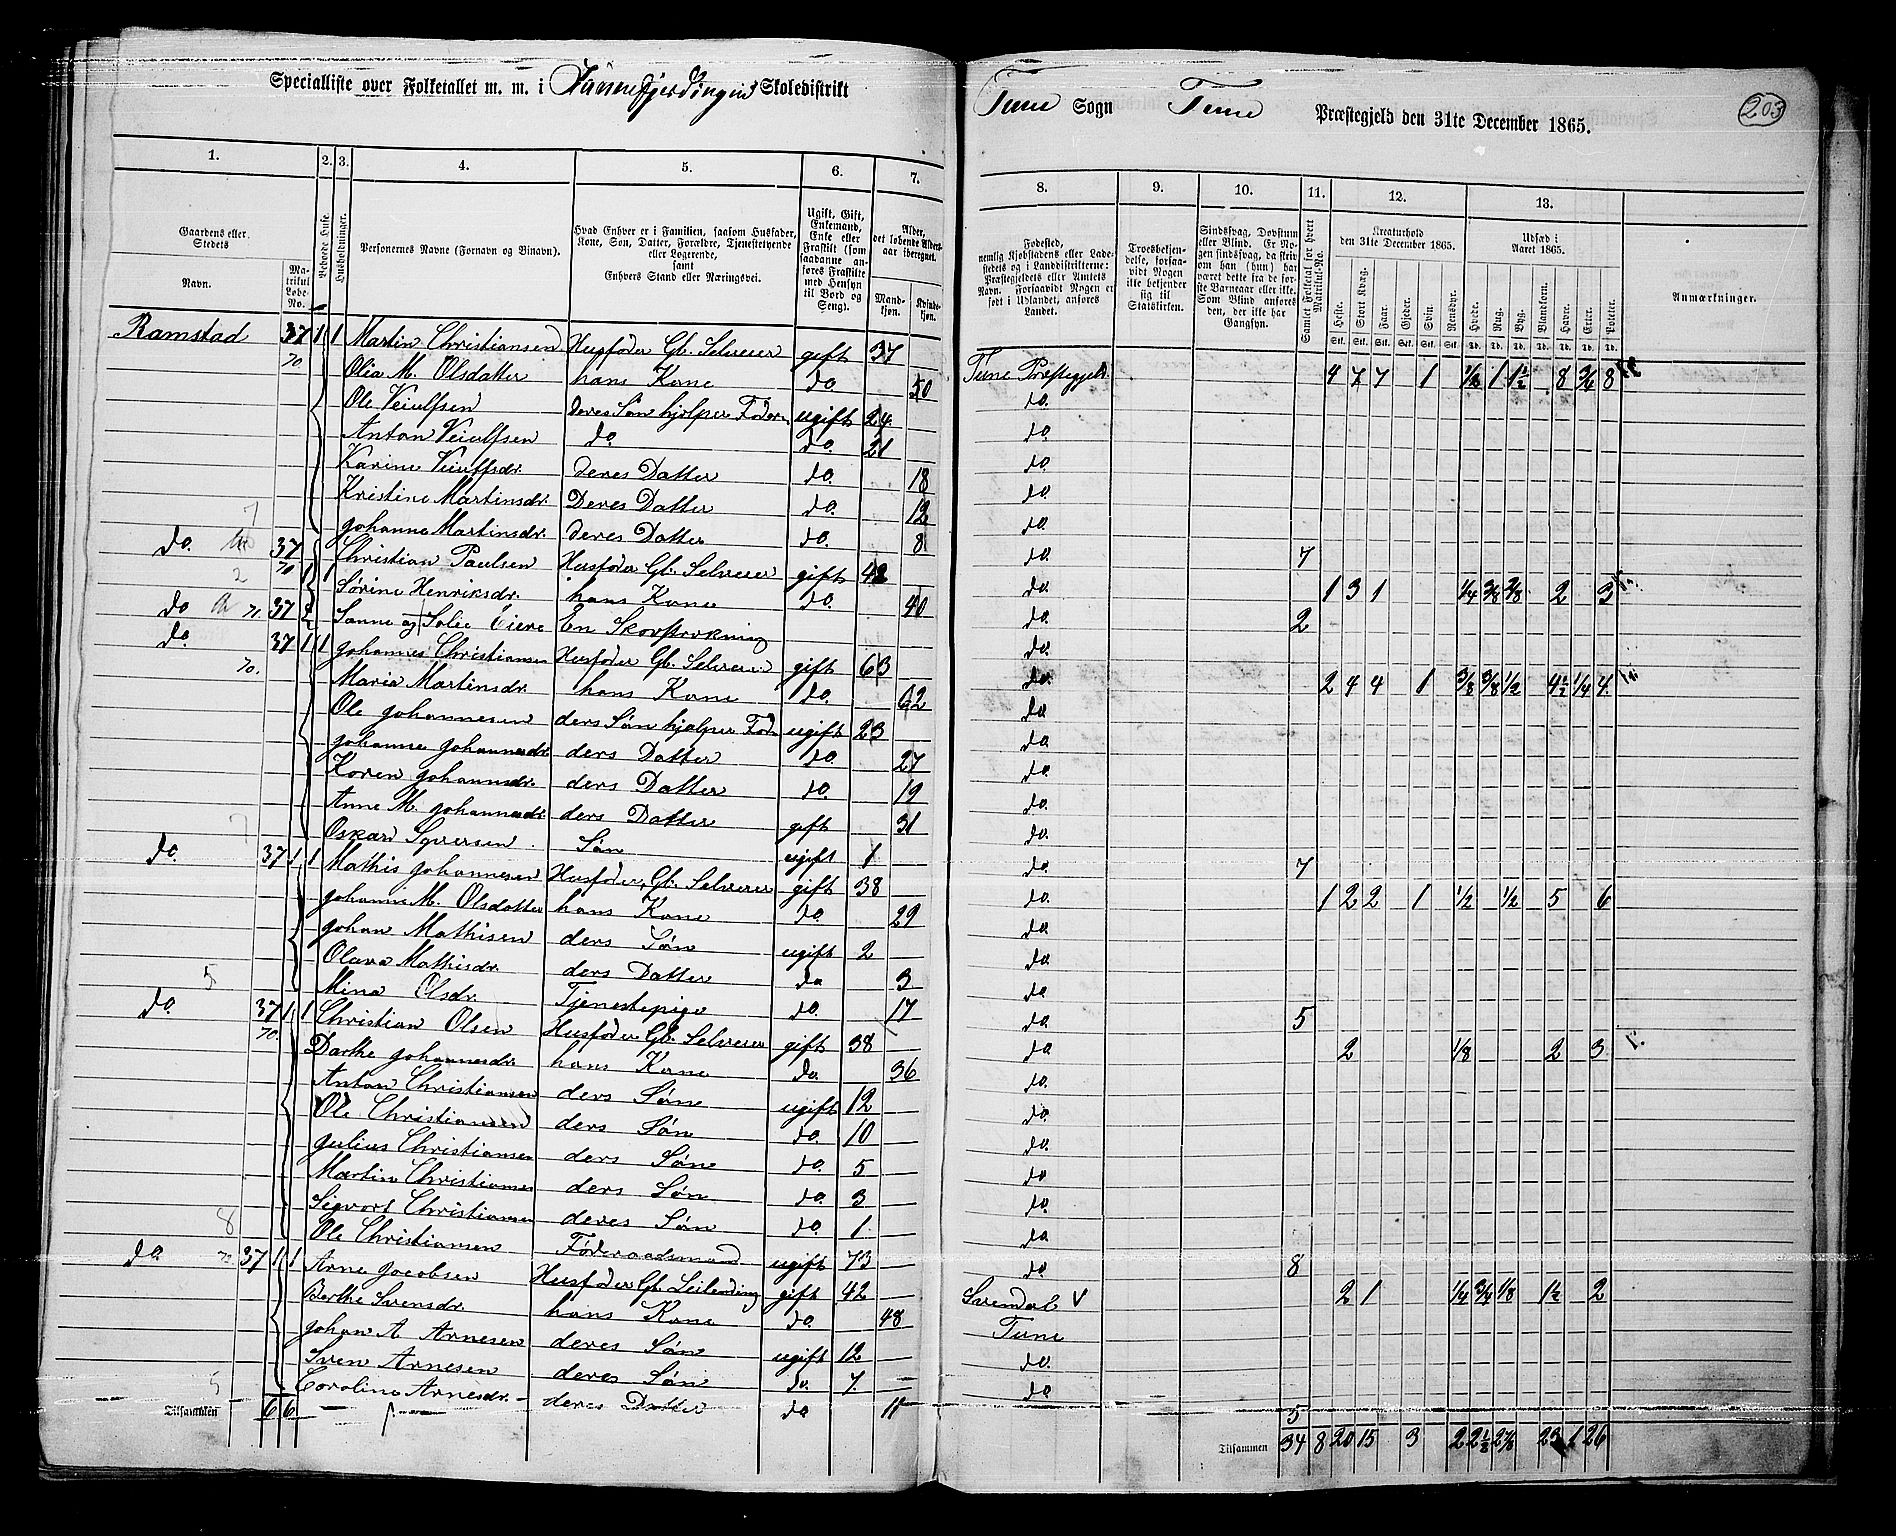 Specialliste over Folketallet m. m. i Skoledistrikt
Tune Sogn Tune Præstegjeld den 31te December 1865. 203
1. 2. 3. 4. 5. 6. 7. 8. 9. 10. 11. 12. 13.
Gaardens eller Stedets
Navn.
Matrikul Løbe-No.
Beboede Huse.
Husholdninger.
Personernes Navne (Fornavn og Binavn).
Hvad Enhver er i Familien, saasom Husfader, Kone, Søn, Datter, Forældre, Tjenestetyende eller Logerende, samt Enhvers Stand eller Næringsvei.
Ugift, Gift, Enkemand, Enke eller Fraskilt (som saadanne anføres Fraskilte med Hensyn til Bord og Seng).
Alder, det løbende Aldersaar iberegnet.
Mandkjøn.
Kvindekjøn.
Fødested, nemlig Kjøbstadens eller Ladestedets og i Landdistrikterne: Præstegjeldets eller Amtets Navn. Forsaavidt Nogen er født i Udlandet, anføres Landet.
Troesbekjendelse, forsaavidt Nogen ikke bekjender sig til Statskirken.
Sindssvag, Døvstum eller Blind. Er Nogen sindssvag, da skrives om han (hun) har været dette fra de første Barneaar eller ikke. Som Blind anføres den, der ikke har Gangsyn.
Samlet Folketal for hvert Matrikul-No.
Kreaturhold den 31te December 1865.
Heste. Stort Kvæg. Faar. Gjeder. Svin. Rensdyr.
Udsæd i Aaret 1865.
Hvede. Rug. Byg. Blandkorn. Havre. Erter. Poteter.
Anmærkninger.
Ramstad 37 1 1 Martin Christiansen Husfader Gb. Selveier gift 37 Tune Præstegjeld 4 7 7 1 1/2 1 1 1/2 8 3/16 8
70 Olia M. Olsdatter hans Kone do. 50 do.
Ole Veiulfsen deres Søn hjælper Fader ugift 24 do.
Anton Veiulfsen do do. 21 do.
Karine Veiulfsdr. deres Datter do. 18 do.
Kristine Martinsdr. Deres Datter do. 12 do.
7 Johanne Martinsdr. deres Datter do. 8 do. 7
do. 37 70 1 1 Christian Paulsen Husfader Gb. Selveier gift 48 do. 1 3 1 1/4 3/8 3/8 2 3
2 Sørine Henriksdr. hans Kone do. 40 do. 2
do 71. 37 Sanne og Solie Eiere En Skovstrækning do.
do. 37 1 1 Johannes Christiansen Husfader Gb. Selveier gift 63 do. 2 4 4 1 3/8 3/8 1/2 4 1/2 1/4 4
70. Maria Martinsdr. hans Kone do. 62 do
Ole Johannesen ders Søn hjælper Fad ugift 23 do.
Johanne Johannesdr. ders Datter do. 27 do.
Karen Johannsdr. ders Datter do. 19 do.
Anne M. Johannesdr. ders Datter gift 31 do.
7 Oskar Syversen Søn ugift 1 do. 7
do. 37 1 1 Mathis Johannesen Husfader, Gb. Selveier gift 38 do. 1 2 2 1 1/2 1/2 5 6
Johanne M. Olsdatter hans Kone do. 29 do.
Johan Mathisen ders Søn ugift 2 do.
Olava Mathisdr. ders Datter do 3 do
5 Mina Olsdr. Tjenestepige do. 17 do 5
do. 37 1 1 Christian Olsen Husfader Gb. Selveier gift 38 do 2 1/8 2 3
70. Dorthe Johannesdr. hans Kone do. 36 do.
Anton Christiansen ders Søn ugift 12 do.
Ole Christiansen ders Søn do. 10 do.
Julius Christiansen ders Søn do. 5 do
Martin Christiansen ders Søn do. 3 do.
Sigvart Christiansen deres Søn do. 1 do
8 Ole Christiansen Føderaadsmand ugift 73 do. 8
do 70 37 1 1 Arne Jacobsen Husfader Gb. Leilending gift 42 2 1 1/4 3/4 1/8 1 1/2 2
Berthe Svensdr. hans Kone do. 48 Tune
Johan A Arnesen deres Søn ugift 12 do.
Sven Arnesen deres Søn do. 7. do
5 Caroline Arnesdr. deres Datter do 11 5
Tilsammen 6 6 Tilsammen 34 8 20 15 3 2 2 1/2 2 7/8 23 1 26